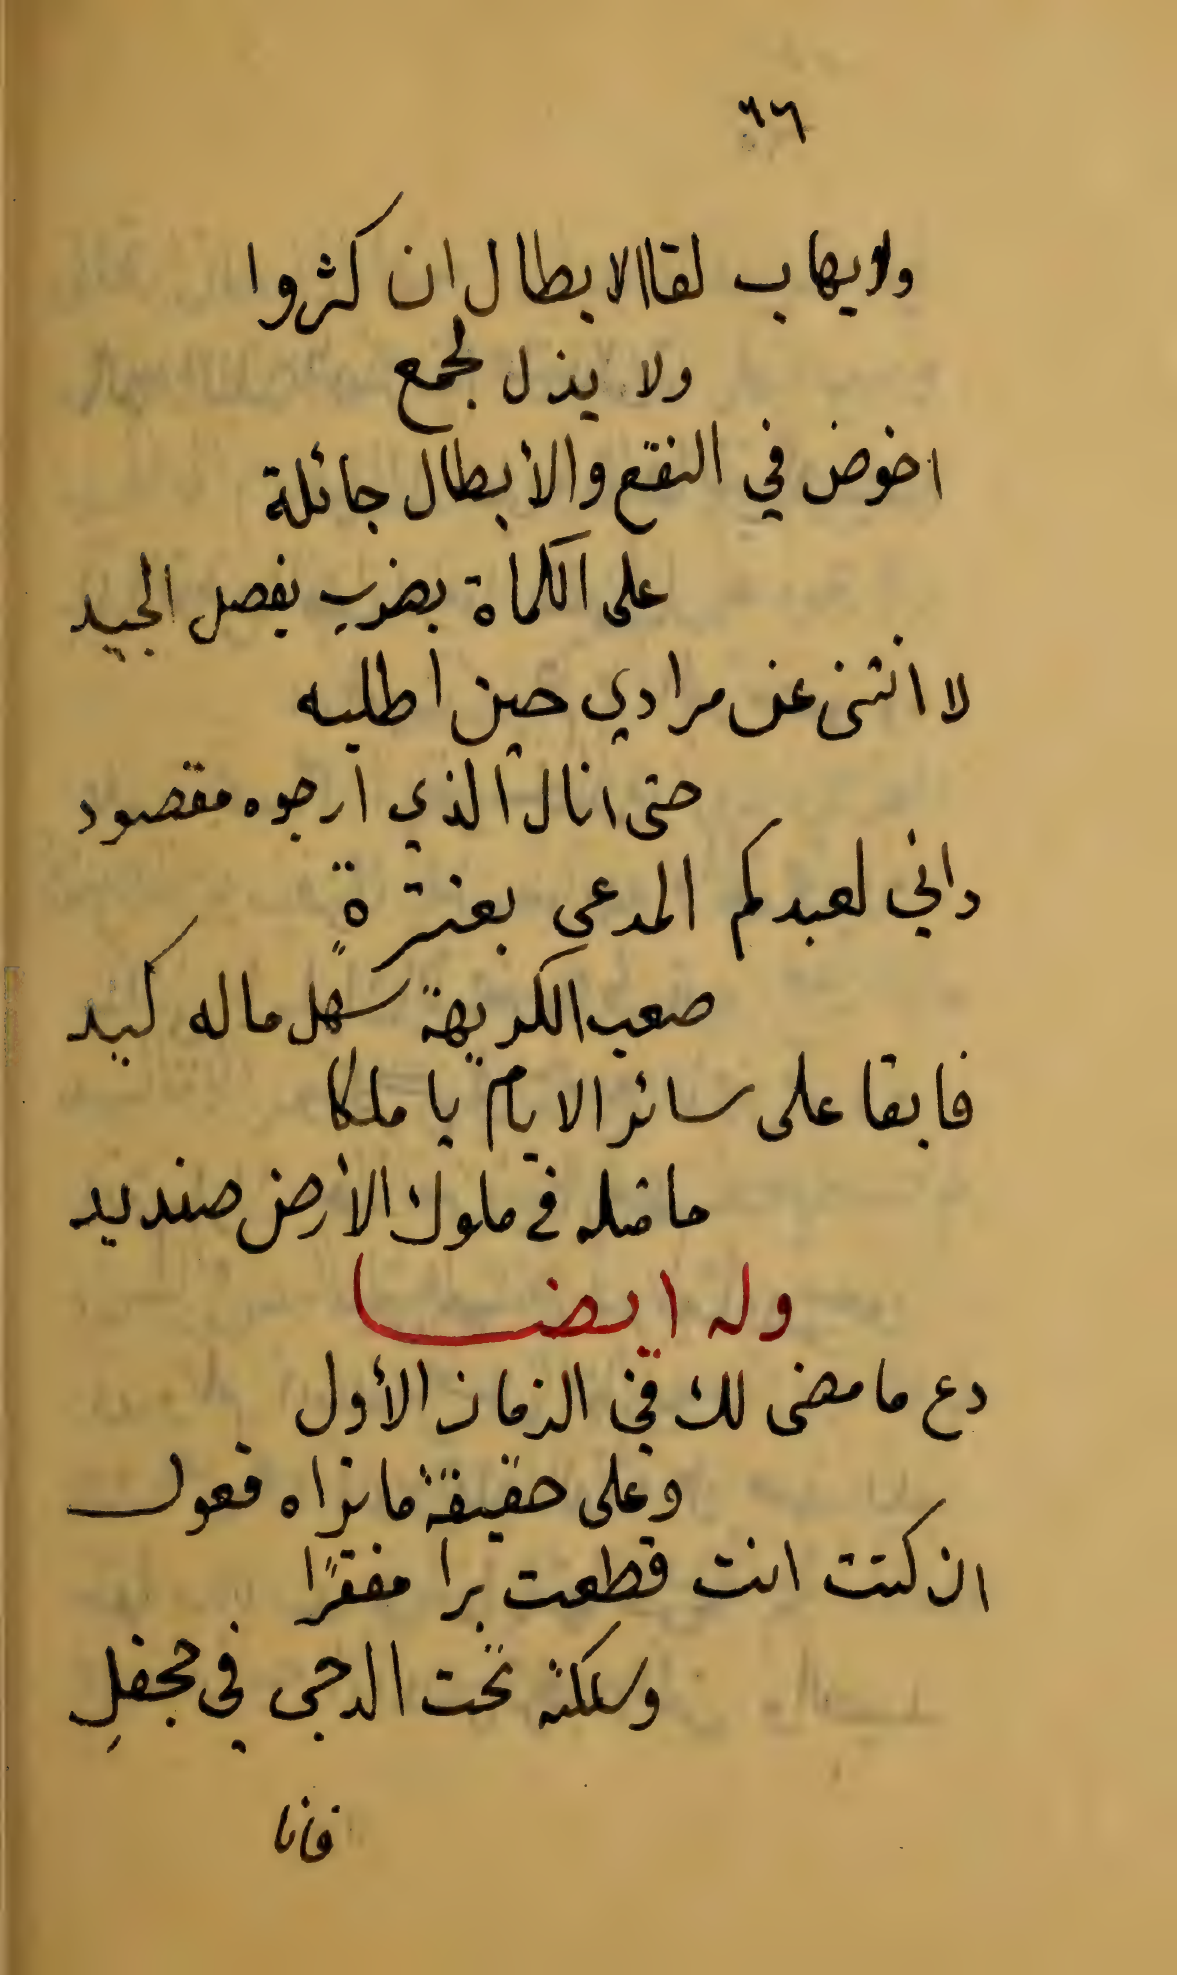 ٦٦
ولا يهاب لقا الابطال ان كثروا
ولا يذل لجمع
اخوض في النقع والأبطال جائلة
على الكماة بضربٍ يفصل الجيد
لا انثنى عن مرادي حين اطلبه
حتى انال الذي ارجوه مقصود
داني لعبدكم المدعى بعنترةٍ
صعب الكريهة سهل ماله كيد
فابقا على سائر الايام يا ملكا
ما مثله في ملوك الأرض صنديد
وله ايضا
دع ما مضى لك في الزمان الأول
وعلى حقيقة ما تراه فعول
ان كنت انت قطعت برا مفقرًا
وسلكته تحت الدجى في جحفلِ
فانا